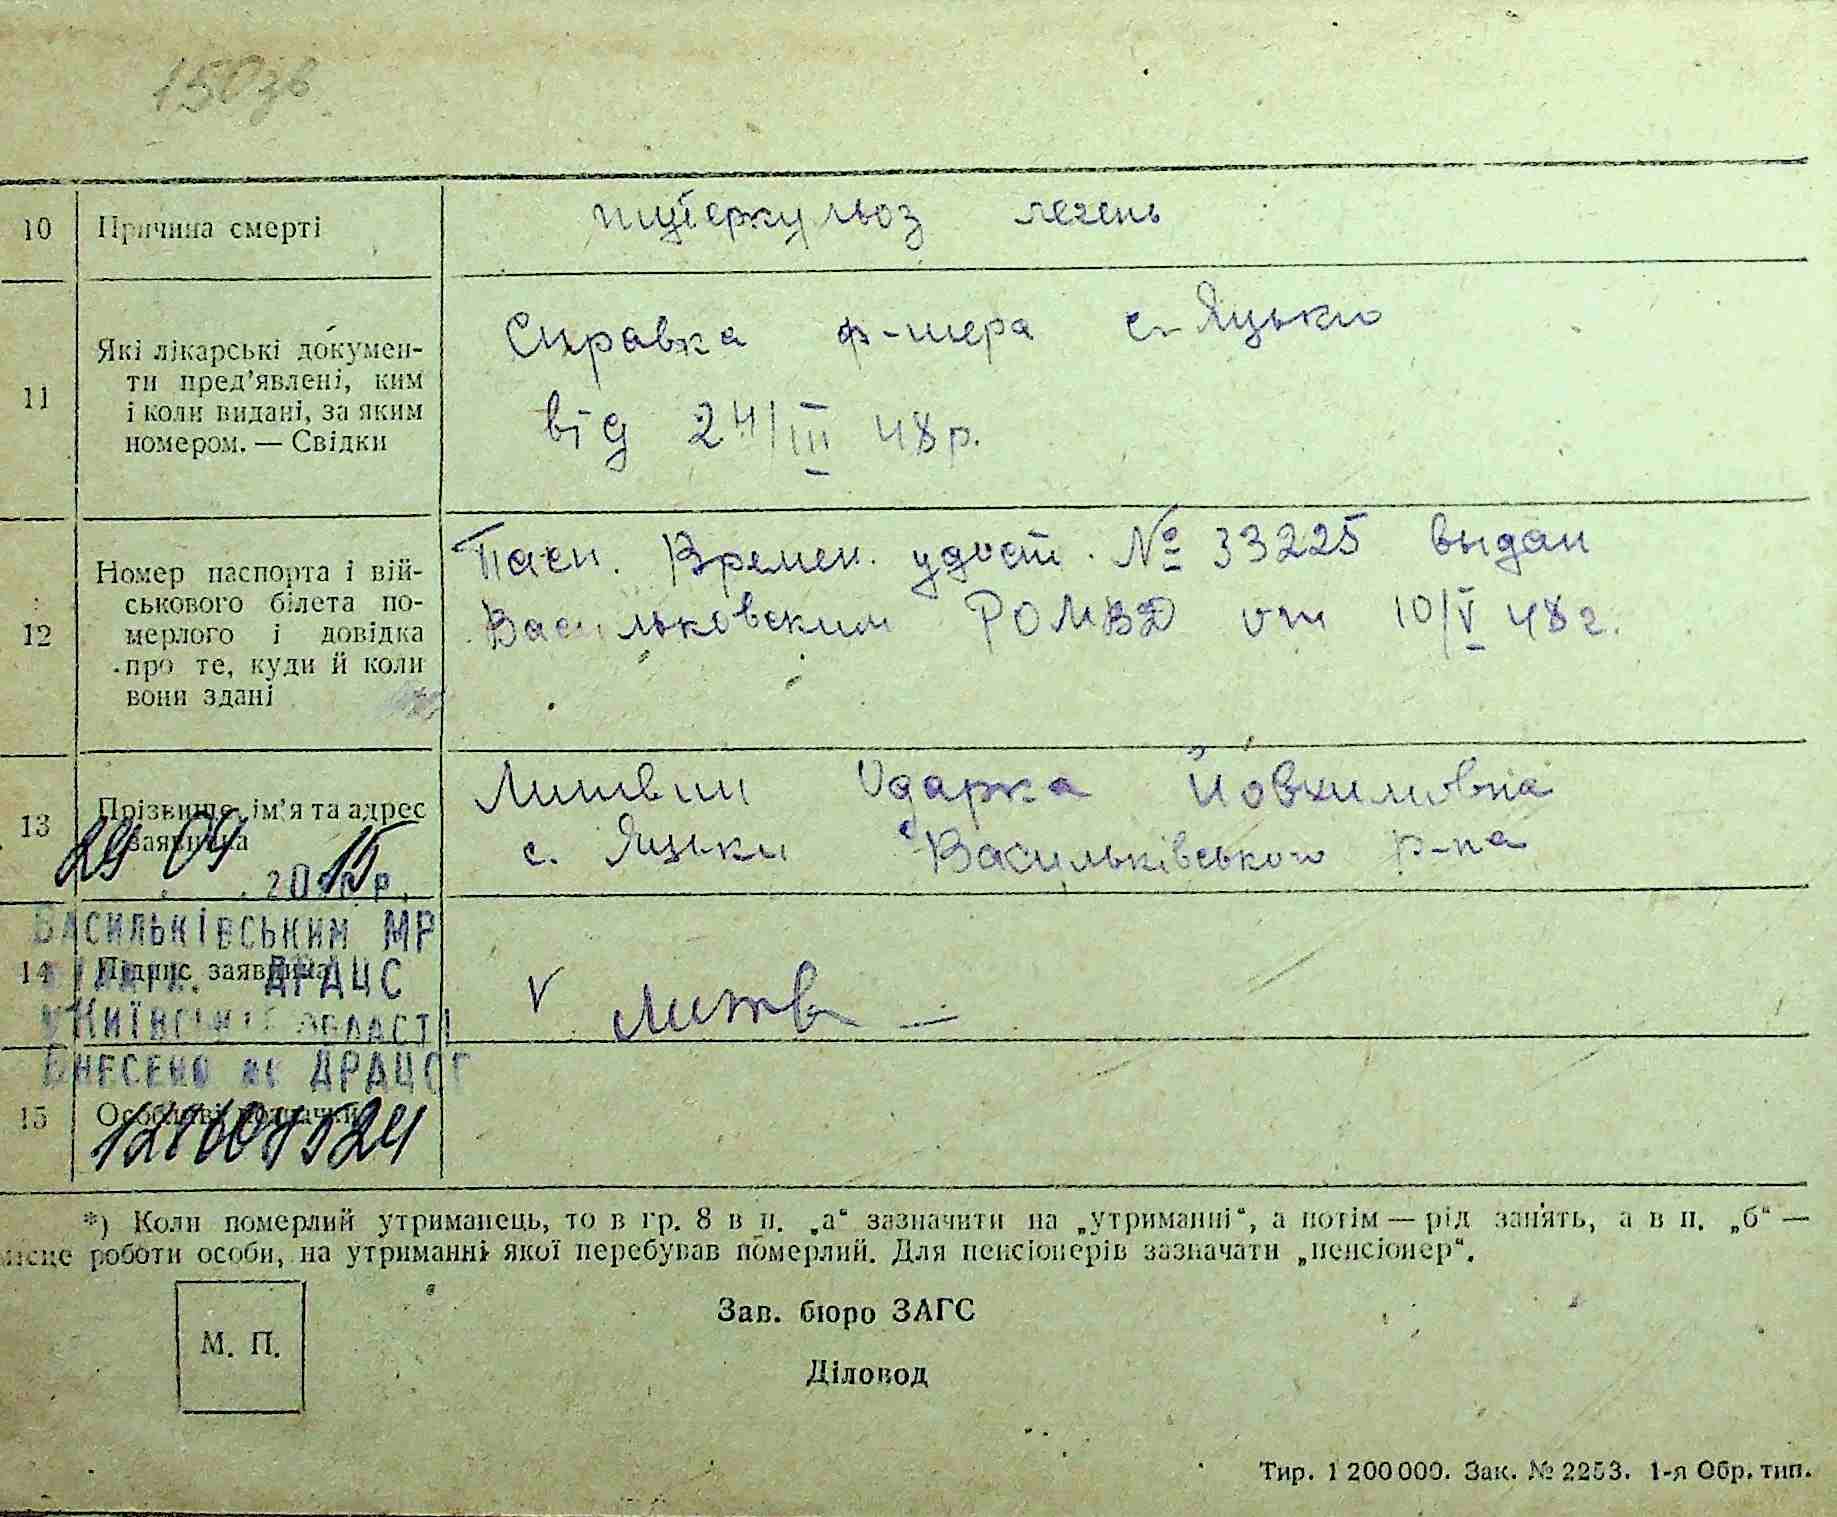 150зв
10 Причина смерті туберкульоз легень
11 Які лікарські докумен-
ти пред'явлені, ким
і коли видані, за яким
номером. — Свідки
Справка ф-шера с. Яцьки
від 24/III 48р.
12 Номер паспорта і вій-
ськового білета по-
мерлого і довідка
про те, куди й коли
вони здані
Пасп. Времен. удост. № 33225 выдан
Васильковским РОМВД от 10/V 48г.
13 Прізвище, ім'я та адрес
заявника
Литвин Одарка Йовхимовна
с. Яцьки Васильківського р-на
29 09 2015 р.
ВАСИЛЬКІВСЬКИМ МР
14 Підпис заявника
V Литв
ДРАЦС
КИЇВСЬКІЙ ОБЛАСТІ
ВНЕСЕНО ДО ДРАЦСГ
15 Особливі позначки
*) Коли померлий утриманець, то в гр. 8 в п. „а“ зазначити на „утриманні“, а потім — рід занять, а в п. „б“ —
місце роботи особи, на утриманні якої перебував померлий. Для пенсіонерів зазначати „пенсіонер“.
М. П.
Зав. бюро ЗАГС
Діловод
Тир. 1 200 000. Зак. № 2253. 1-я Обр. тип.